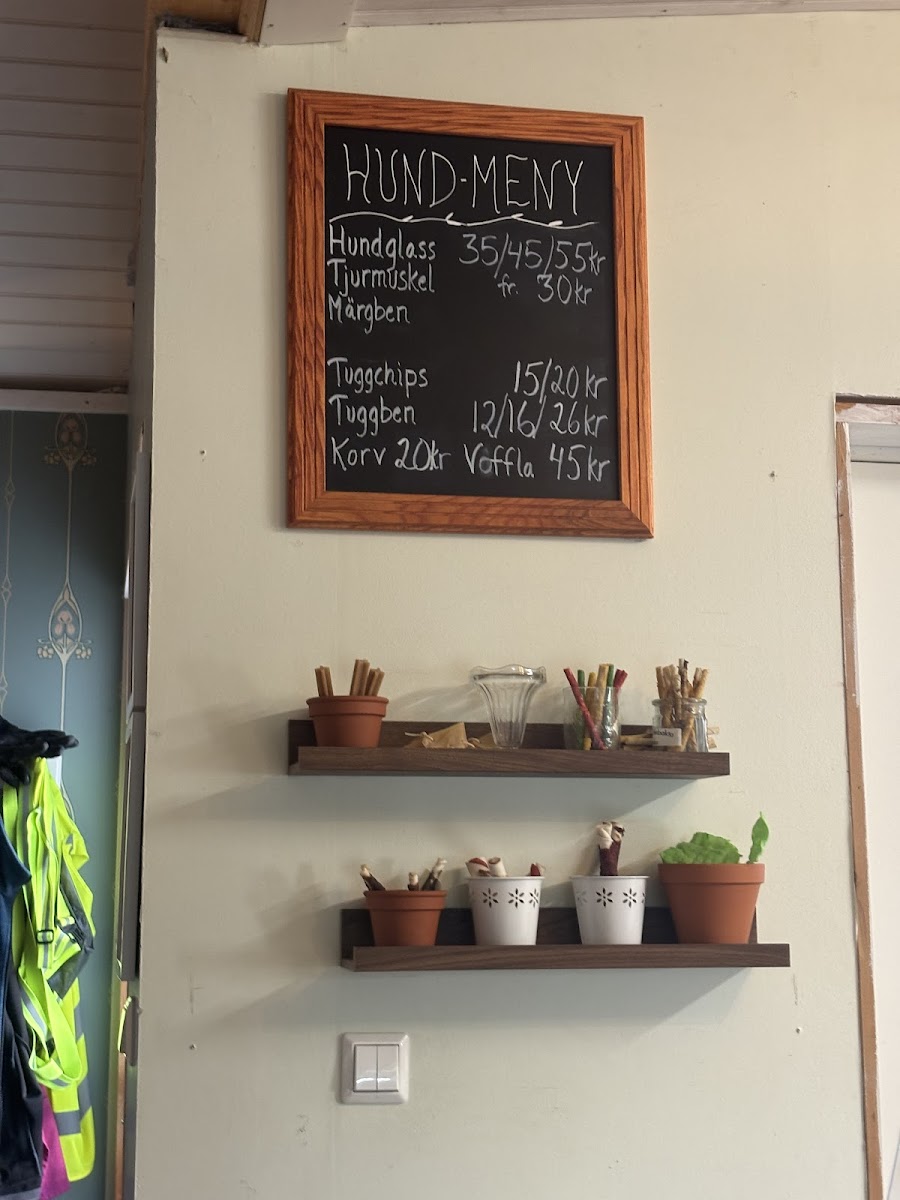 HUND-MENY
Hundglass 35/45/55kr
Tjurmuskel fr. 30kr
Märgben
Tuggchips 15/20 kr
Tuggben 12/16/26kr
Korv 20kr Våffla 45kr